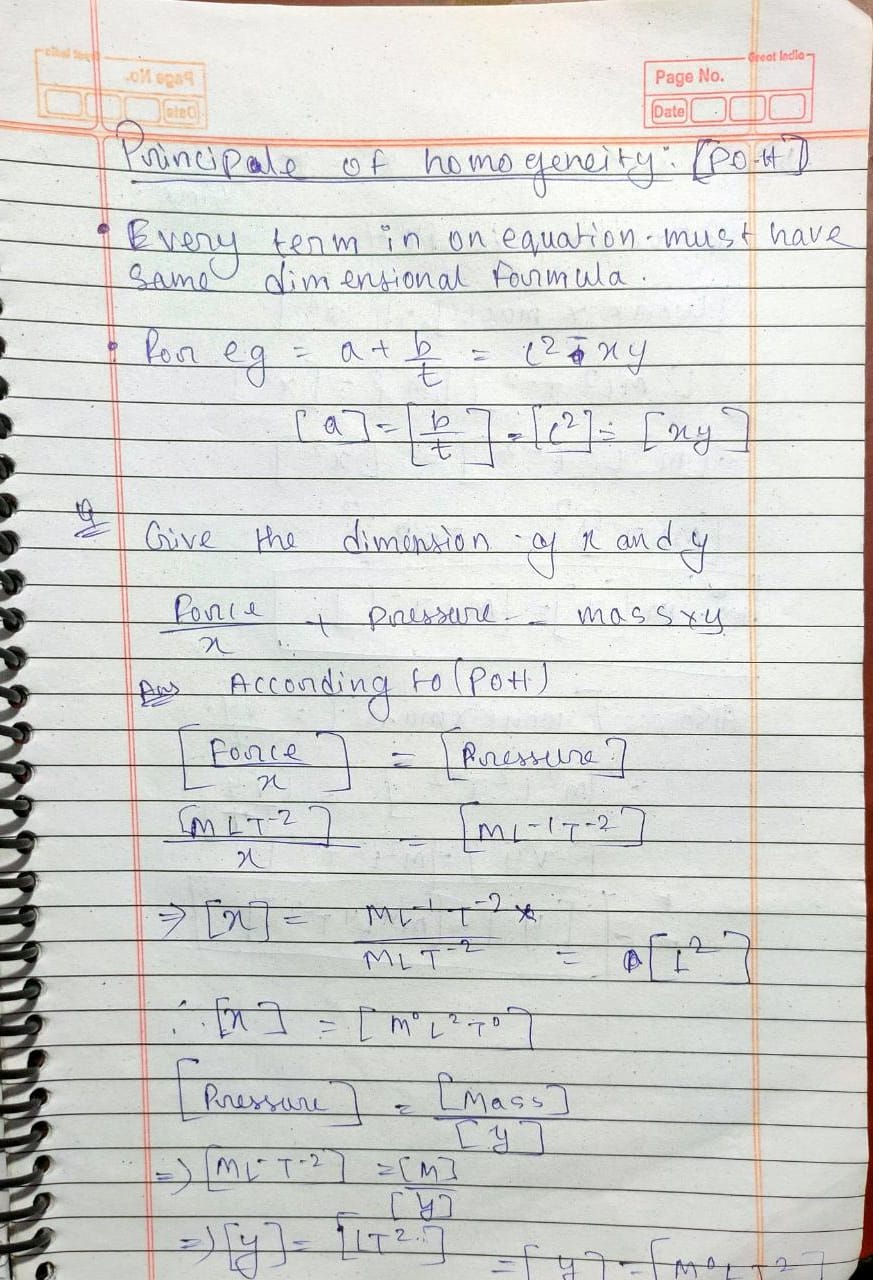 Great India
Page No.
Date
Principale of homogeneity: [PO-H]
• Every term in on equation must have
same dimensional formula.
• For eg = a + b/t = c² - xy
[a] = [b/t] = [c²] = [xy]
Q Give the dimension of x and y
Force/x + Pressure = mass x y
Ans According to (POH)
[Force/x] = [Pressure]
[MLT-2]/x = [ML-1T-2]
⇒ [x] = ML-1T-2/MLT-2 = [L2]
∴ [x] = [M⁰L²T⁰]
[Pressure] = [Mass]/[y]
⇒ [ML-T-2] = [M]/[y]
⇒ [y] = [LT2] = [y] = [M⁰LT2]